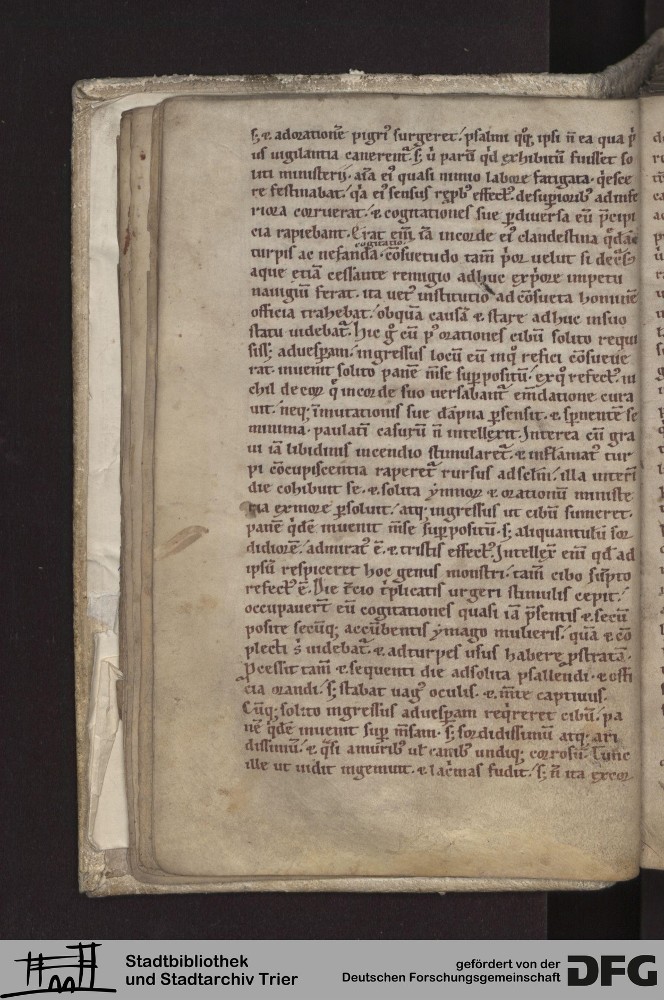 s; & ad orationē pigri surgeret. psalmi qq; ipsi n̄ ea qua p̄
us uigilantia canerent. s; ū parū qd exhibitū fuisset so
liti ministerij. aīa ei quasi nimio labore fatigata. qesce
re festinabat. qa ei sensus effect. de supiorib ad infe
riora corruerat. & cogitationes sue p diuersa eū
cia rapiebant. Erat eīm iā in corde ei clandestina qdā
cogitatio
turpis ac nefanda. cōsuetudo tam̄ velut si
aque etiā cessante remigio adhuc impetu
nauigiū ferat. ita uet institutio ad cōsueta hominē
officia trahebat. ob quā causā & stare adhuc in suo
statu uidebat. Hic g̊ cū p orationes cibū solito requi
siss; ad uespam. ingressus locū eū in q̊ refici cōsueue
rat. inuenit solito panē mse suppositū. ex q̊ refect. ni
chil de cor q̊ in corde suo uersabant emdatione cura
uit. neq; īmutationis sue dāpna psensit. & spnentē se
minima paulati casurū n̄ intellexit. Interea cū gra
ui iā libidinis incendio stimularet. & inflāmat tur
pi cōcupiscentia raperet rursus ad sclm. illa interī
die cohibuit se. & solita ymnor & orationū ministe
ria ex more psoluit. atq; ingressus ut cibū sumeret.
panē qde inuenit mse suppositū. s; aliquantulū sor
didiorē. admirat ē. & tristis effect. Intellex eīm qd ad
ipsū respiceret hoc genus monstri. tam̄ cibo supto
refect ē. Die tcio tplicatis urgeri stimulis cepit.
occupauert eū cogitationes quasi iā psentis & secū
posite secūq; accūbentis ymago mulieris. quā & cō
plecti s̄ uidebat. & ad turpes usus habere pstratā.
Pcessit tam̄ & sequenti die ad solita psallendi. & offi
cia orandi. s; stabat uag oculis. & mte captiuus.
Cūq; solito ingressus ad uespam reqreret cibū. pa
nē qde inuenit sup msam. s; sordidissimū atq; ari
dissimū. & qsi a murib ul canib undiq; corrosū. Tunc
ille ut uidit ingemuit. & lacmas fudit. s; n̄ ita ex cor
Stadtbibliothek
und Stadtarchiv Trier
gefördert von der
Deutschen Forschungsgemeinschaft
DFG